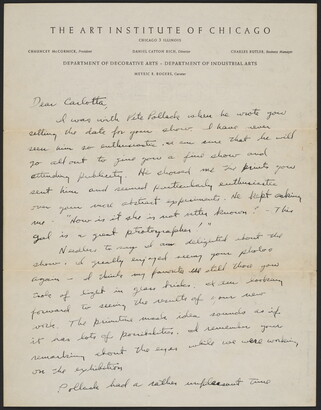 THE ART INSTITUTE OF CHICAGO
CHICAGO 3 ILLINOIS
CHAUNCEY McCORMICK, President DANIEL CATTON RICH, Director CHARLES BUTLER, Business Manager
DEPARTMENT OF DECORATIVE ARTS - DEPARTMENT OF INDUSTRIAL ARTS
MEYRIC R. ROGERS, Curator
Dear Carlotta,
I was with Pete Pollack when he wrote you
setting the date for your show. I have never
seen him so enthusiastic. I am sure that he will
go all out to give you a fine show and
attending publicity. He showed me the prints you
sent him and seemed particularly enthusiastic
over your more abstract experiments. He kept asking
me - "How is it she is not better known" - "This
girl is a great photographer!"
Needless to say I am delighted about the
show. I greatly enjoyed seeing your photos
again - I think my favorites are still those you
took of light in glass bricks. I am looking
forward to seeing the results of your new
work. The primitive mask idea sounds as if
it has lots of possibilities. I remember your
remarking about the eyes while we were working
on the exhibition
Pollack had a rather unpleasant time